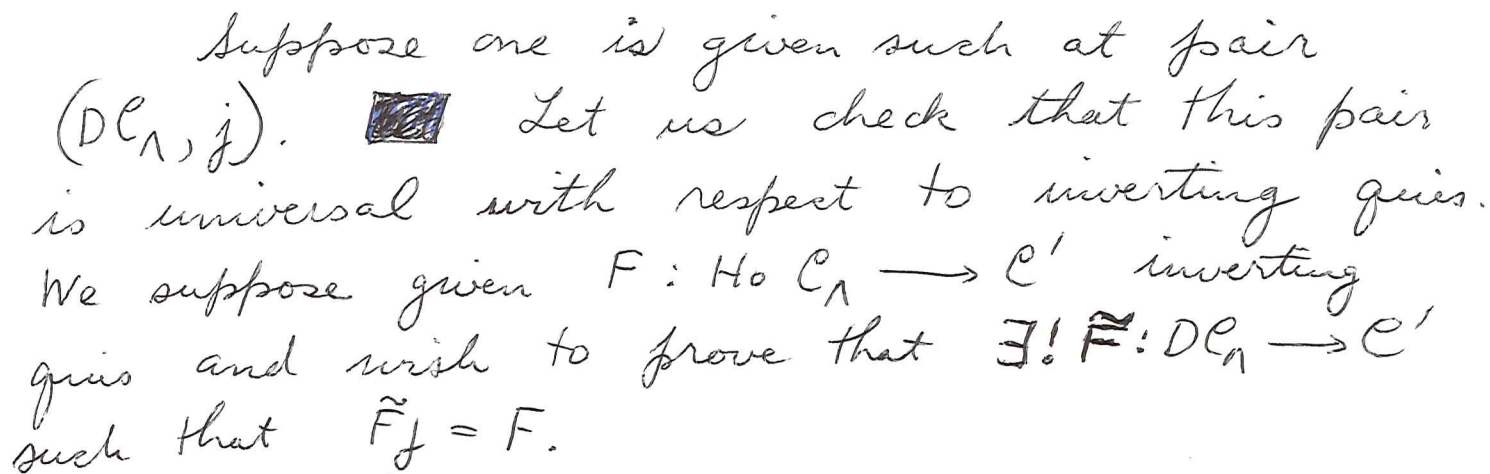 Suppose one is given such at pair
(DC_Λ, j). Let us check that this pair
is universal with respect to inverting quis.
We suppose given F : Ho C_Λ → C' inverting
quis and wish to prove that ∃! F̃ : DC_Λ → C'
such that F̃j = F.